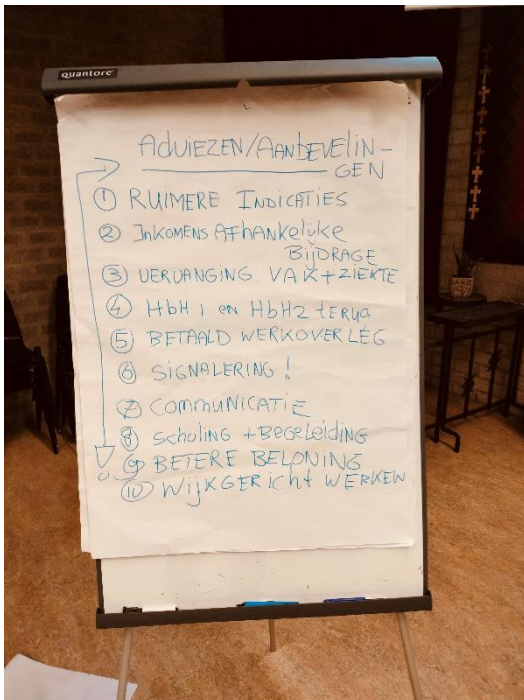 quantore
ADVIEZEN/AANBEVELIN-
GEN
① RUIMERE INDICATIES
② INKOMENS AFHANKELIJKE
BIJDRAGE
③ VERVANGING VAK+ZIEKTE
④ HbH1 en HbH2 terug
⑤ BETAALD WERKOVERLEG
⑥ SIGNALERING!
⑦ COMMUNICATIE
⑧ Scholing + Begeleiding
⑨ BETERE BELONING
⑩ WIJKGERICHT WERKEN